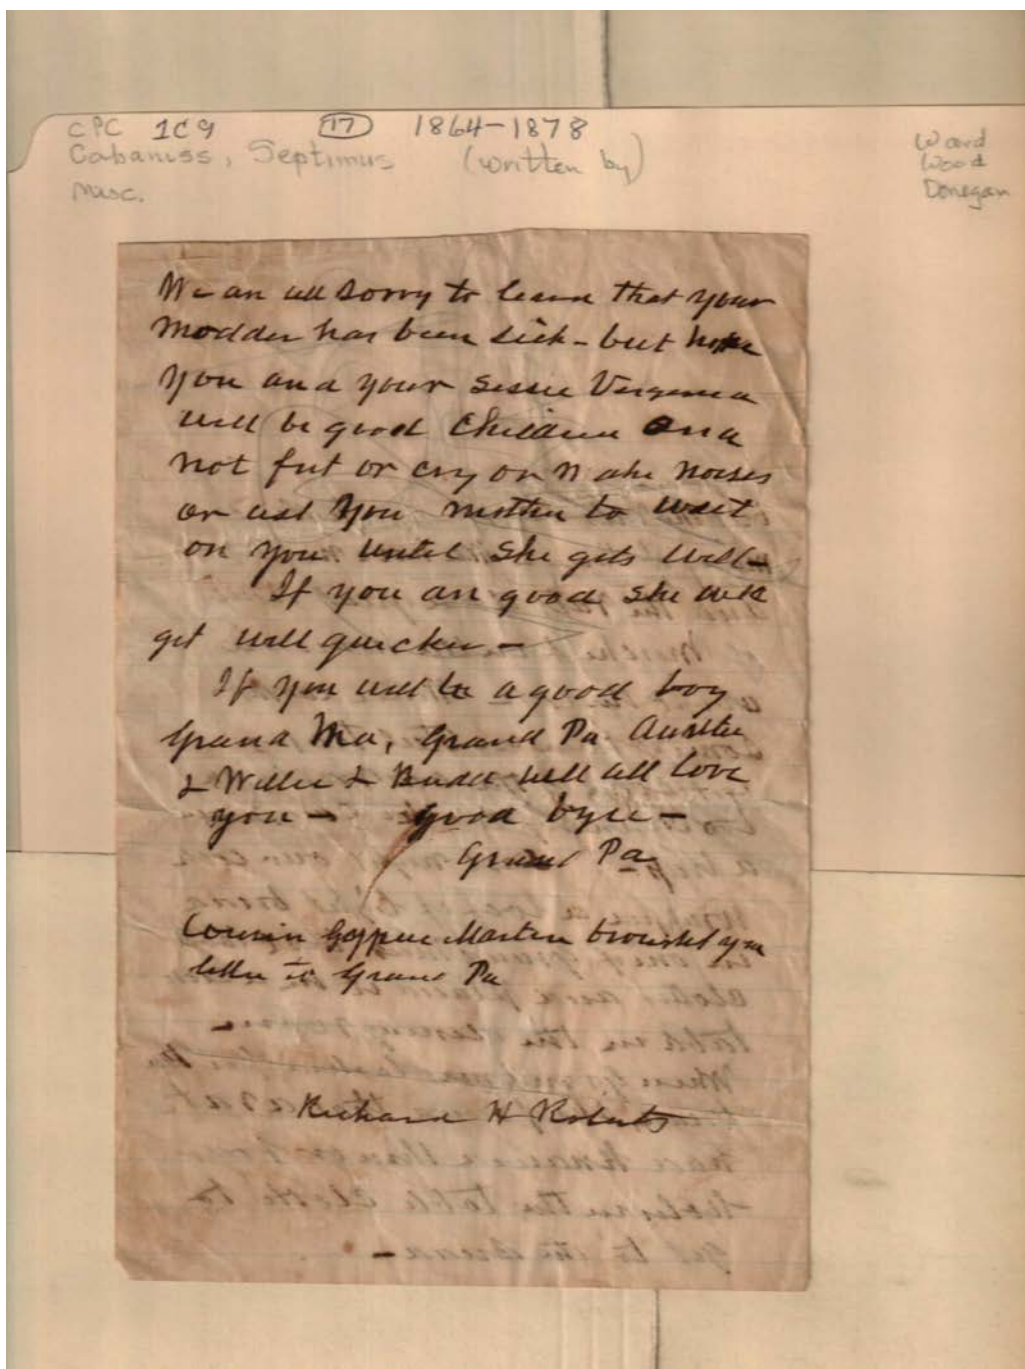 CPC 1C9 17 1864-1878
Cabaniss, Septimus (written by)
Misc.
Ward
Wood
Donegan
We are all sorry to learn that your
Modder has been sick - but hope
you and your Sessie Vergenia
will be good Children and
not fret or cry or make noises
or ask you mother to wait
on you until she gets well -
If you are good she will
get well quicker -
If you will be a good boy
Grand Ma, Grand Pa Auntie
& Willie & Budd will all love
you - good bye -
Grand Pa
Cousin Martin brought you
letter to Grand Pa
Richard H Roberts